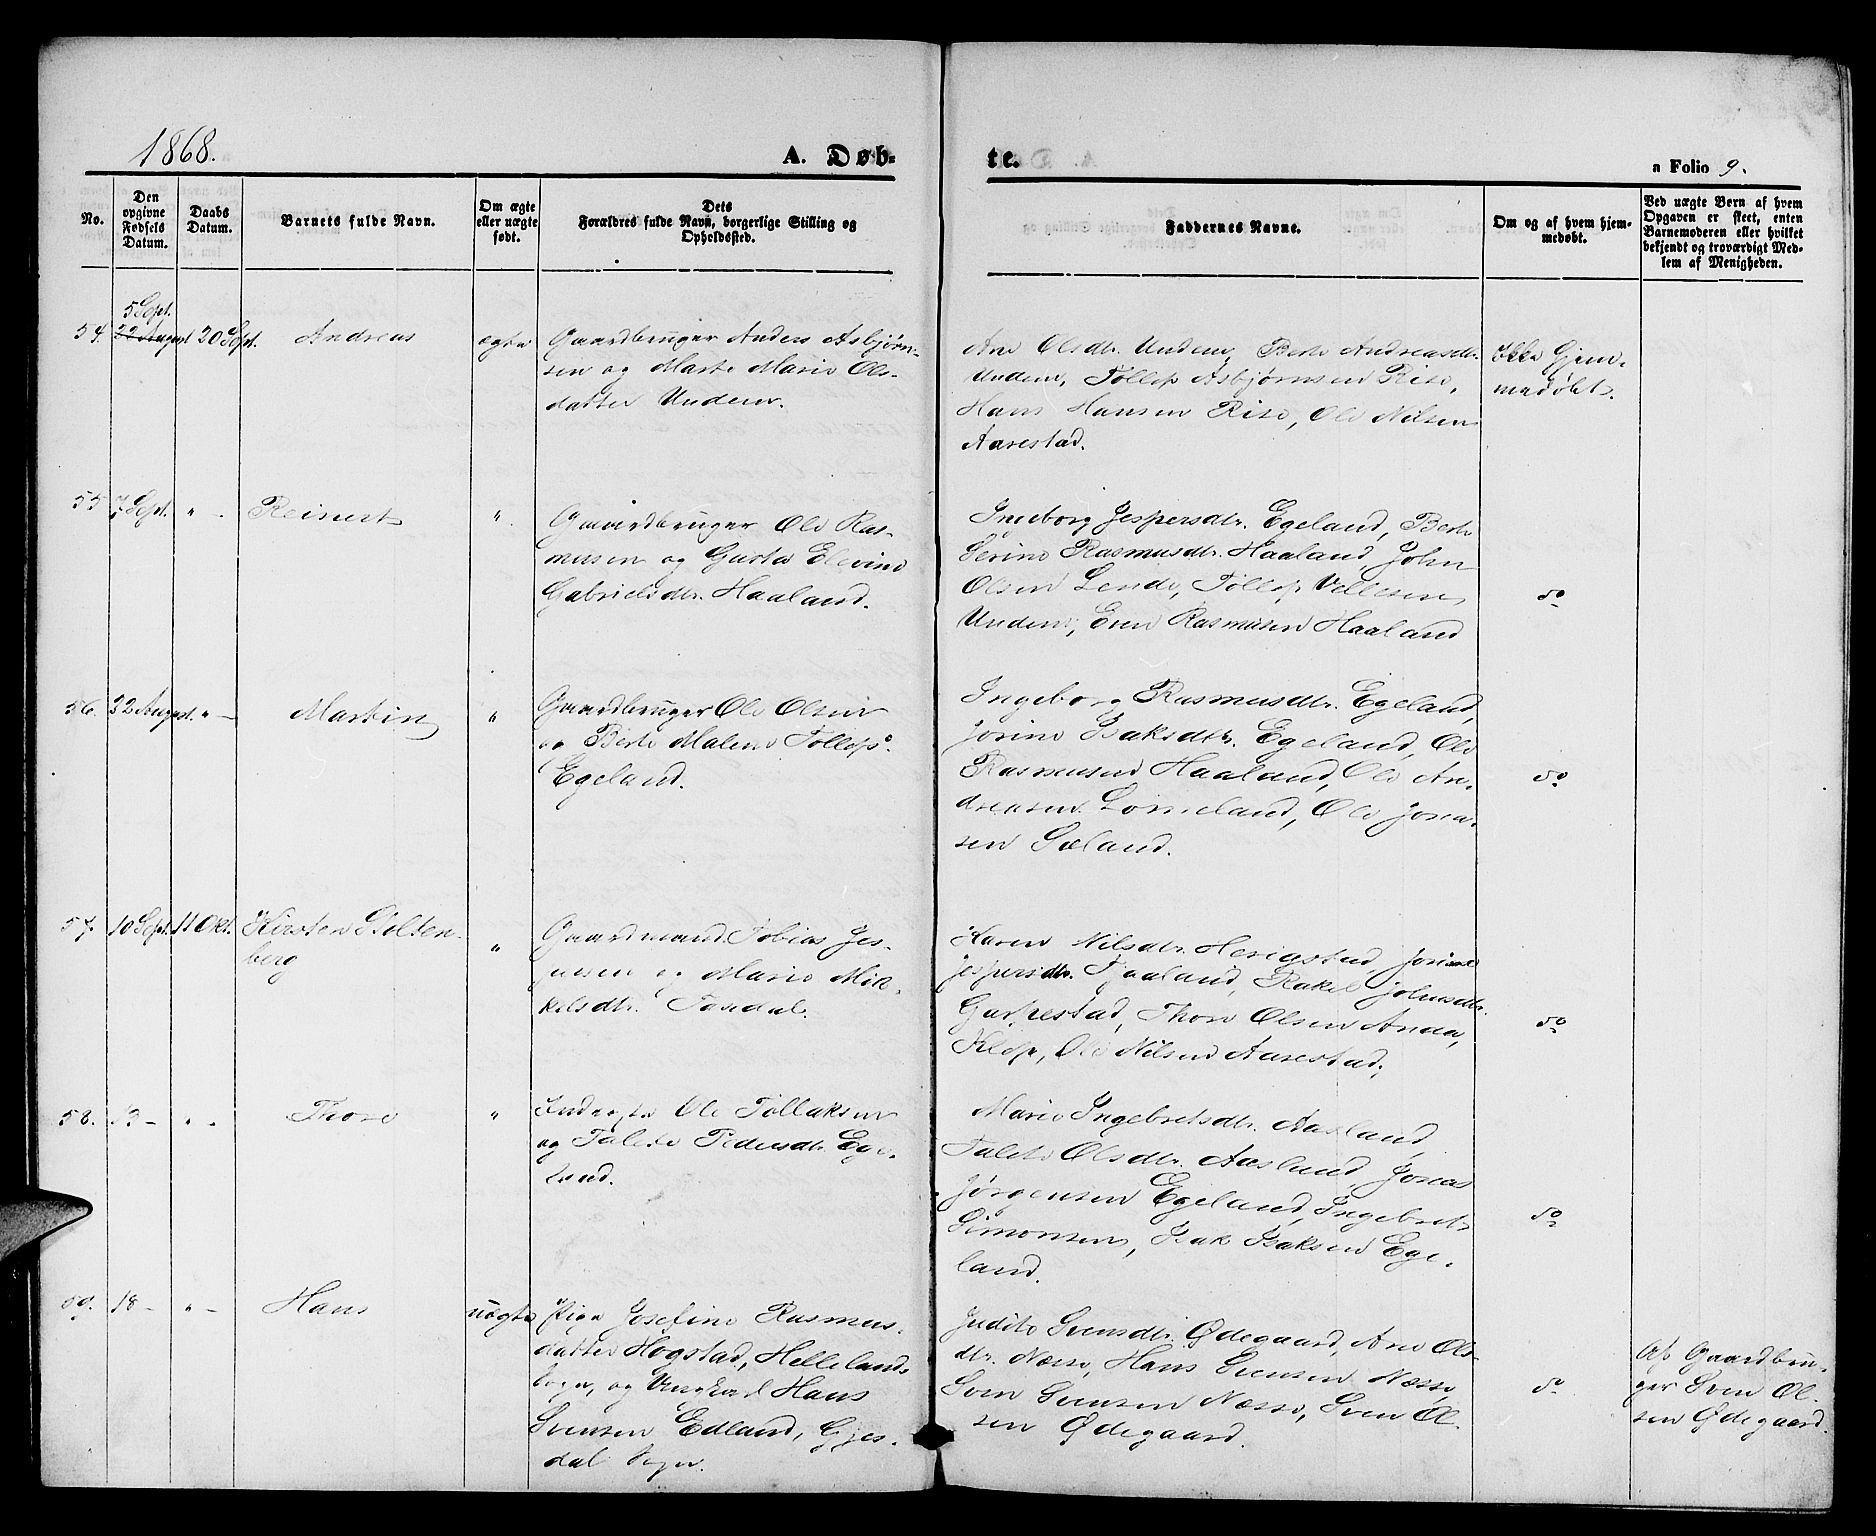 1868.
A. Døb-
te.
a Folio 9.
No.
Den opgivne Fødsels Datum.
Daabs Datum.
Barnets fulde Navn.
Om ægte eller uægte født.
Dets Forældres fulde Navn, borgerlige Stilling og Opholdssted.
Faddernes Navne.
Om og af hvem hjem-
medøbt.
Ved uægte Børn af hvem
Opgaven er skeet, enten
Barnemoderen eller hvilket
bekjendt og troværdigt Med-
lem af Menigheden.
5 Sept.
54. 22 August 20 Sept. Andreas ægte
Gaardbruger Anders Asbjørn-
sen og Marte Marie Ols-
datter Undem.
Ane Olsdtr. Undem, Berte Andreasdtr.
Undem, Tollef Asbjørnsen Rise,
Hans Hansen Rise, Ole Nilsen
Aarestad.
Ikke Hjem-
medøbt.
55 7 Sept. " - Reinert ".
Gaardbruger Ole Ras-
musen og Gusta Elevine
Gabrielsdtr. Haaland.
Ingeborg Jespersdtr. Egeland, Berte
Serine Rasmusdtr. Haaland, John
Olsen Lende, Tollef Vellesen
Undem, Even Rasmusen Haaland
do
56. 22 August. " - Martin "
Gaardbruger Ole Olsen
og Berte Malene Tollefs.
Egeland.
Ingeborg Rasmusdtr. Egeland,
Jorine Isaksdtr. Egeland, Ole
Rasmusen Haaland, Ole An-
dreasen Lomeland, Ole Jona-
sen Sæland.
do
57. 10 Sept. 11 Okt. Kirsten Stolten-
berg "
Gaardmand Tobias Jes-
persen og Marie Mik-
kelsdtr.
Karen Nilsdtr. Herigstad, Jorine
Jespersdtr. Fjaaland, Rakel Johnsdtr.
Garpestad, Thore Olsen Anda,
Klep, Ole Nilsen Aarestad.
do
58. 13 - " - Thore "
Inderste Ole Tollaksen
og Talete Pedersdtr. Ege-
land.
Marie Ingebretsdtr. Aasland,
Talete Olsdtr. Aasland, Jonas
Jørgensen Egeland, Ingebret
Simonsen, Isak Isaksen Ege-
land.
do
59. 18 - " - Hans uægte
Pige Josefine Rasmus-
datter Hogstad, Hellelands
Sogn, og Ungkarl Hans
Svensen Edland, Gjes-
dal Sogn.
Judite Svensdtr. Ødegaard, Ane Ols-
dtr. Næsse, Hans Svensen Næsse,
Sven Svensen Næsse, Sven Ol-
sen Ødegaard.
do
Af Gaardbru-
ger Sven Ol-
sen Ødegaard.